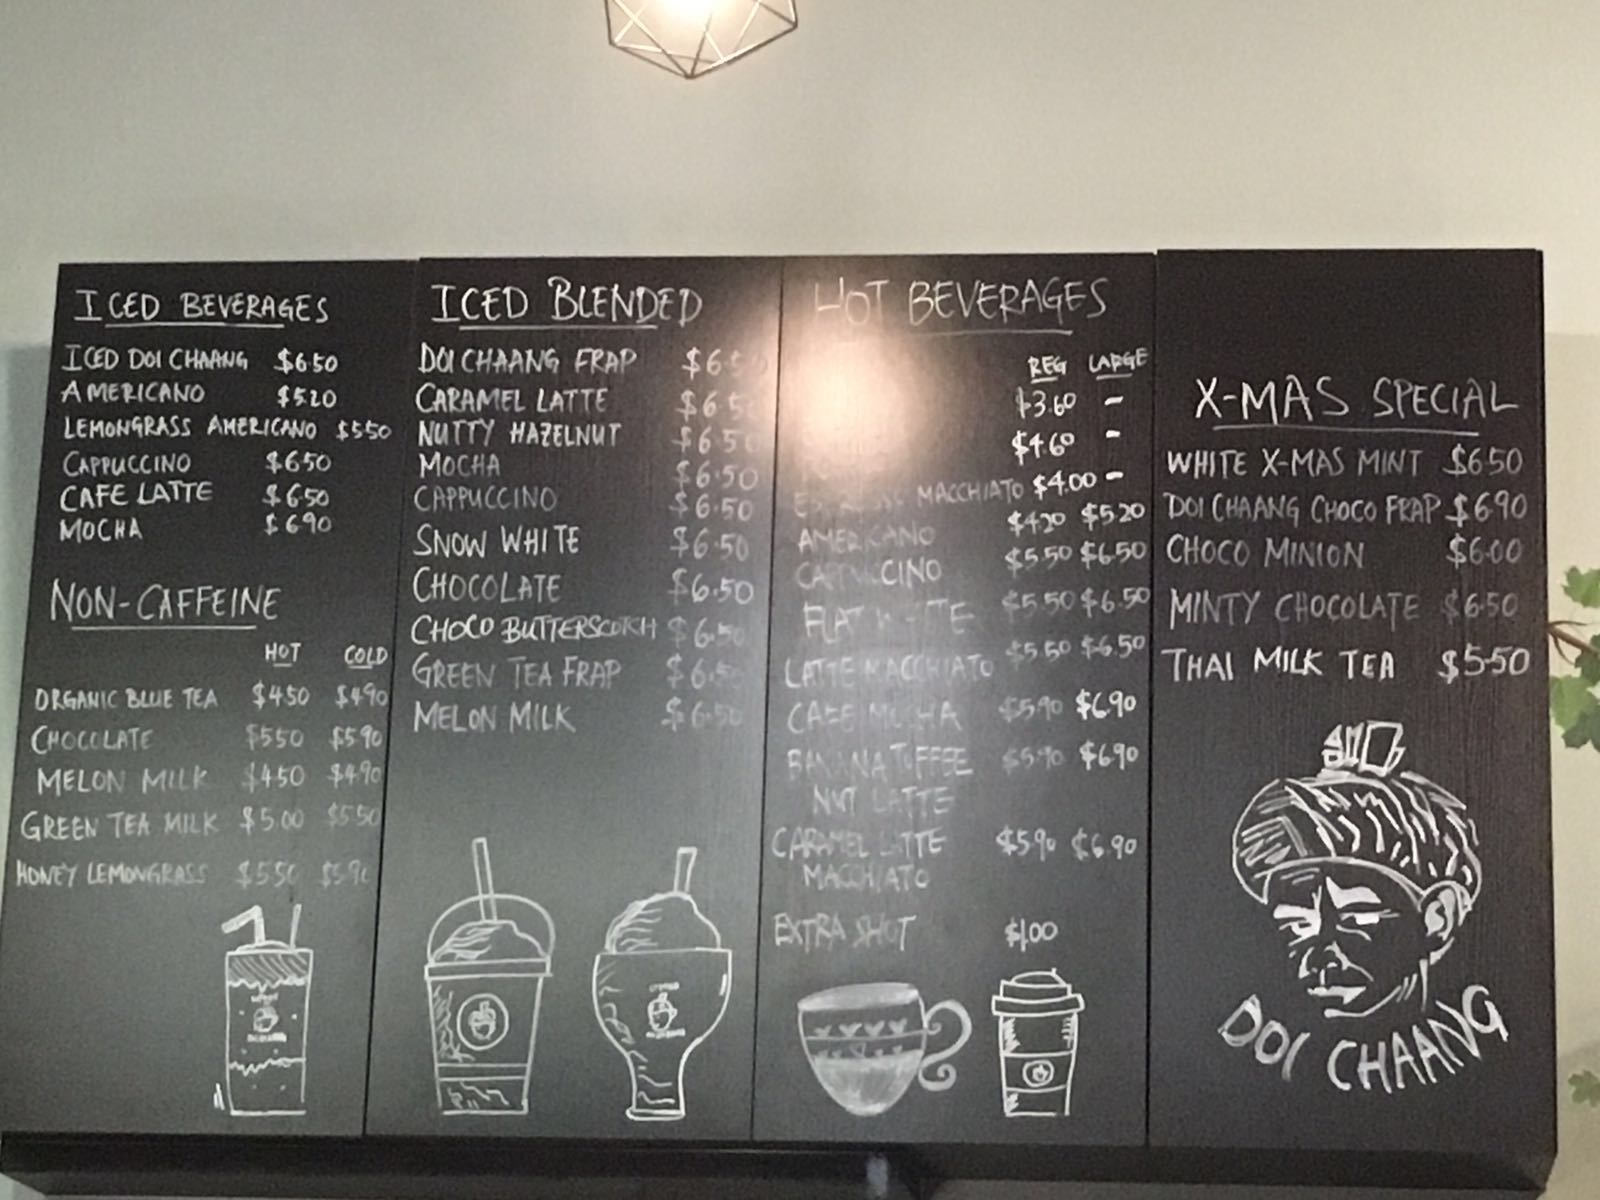 ICED BEVERAGES
ICED DOI CHAANG $6.50
AMERICANO $5.20
LEMONGRASS AMERICANO $5.50
CAPPUCCINO $6.50
CAFE LATTE $6.50
MOCHA $6.90
NON-CAFFEINE
HOT COLD
ORGANIC BLUE TEA $4.50 $4.90
CHOCOLATE $5.50 $5.90
MELON MILK $4.50 $4.90
GREEN TEA MILK $5.00 $5.50
HONEY LEMONGRASS $5.50 $5.90
ICED BLENDED
DOI CHAANG FRAP $6.50
CARAMEL LATTE $6.50
NUTTY HAZELNUT $6.50
MOCHA $6.50
CAPPUCCINO $6.50
SNOW WHITE $6.50
CHOCOLATE $6.50
CHOCO BUTTERSCOTCH $6.50
GREEN TEA FRAP $6.50
MELON MILK $6.50
HOT BEVERAGES
REG LARGE
$3.60 -
$4.60 -
ESPRESSO MACCHIATO $4.00 -
AMERICANO $4.20 $5.20
CAPPUCCINO $5.50 $6.50
FLAT WHITE $5.50 $6.50
LATTE MACCHIATO $5.50 $6.50
CAFE MOCHA $5.90 $6.90
BANANA TOFFEE $5.90 $6.90
NUT LATTE
CARAMEL LATTE $5.90 $6.90
MACCHIATO
EXTRA SHOT $1.00
X-MAS SPECIAL
WHITE X-MAS MINT $6.50
DOI CHAANG CHOCO FRAP $6.90
CHOCO MINION $6.00
MINTY CHOCOLATE $6.50
THAI MILK TEA $5.50
DOI CHAANG